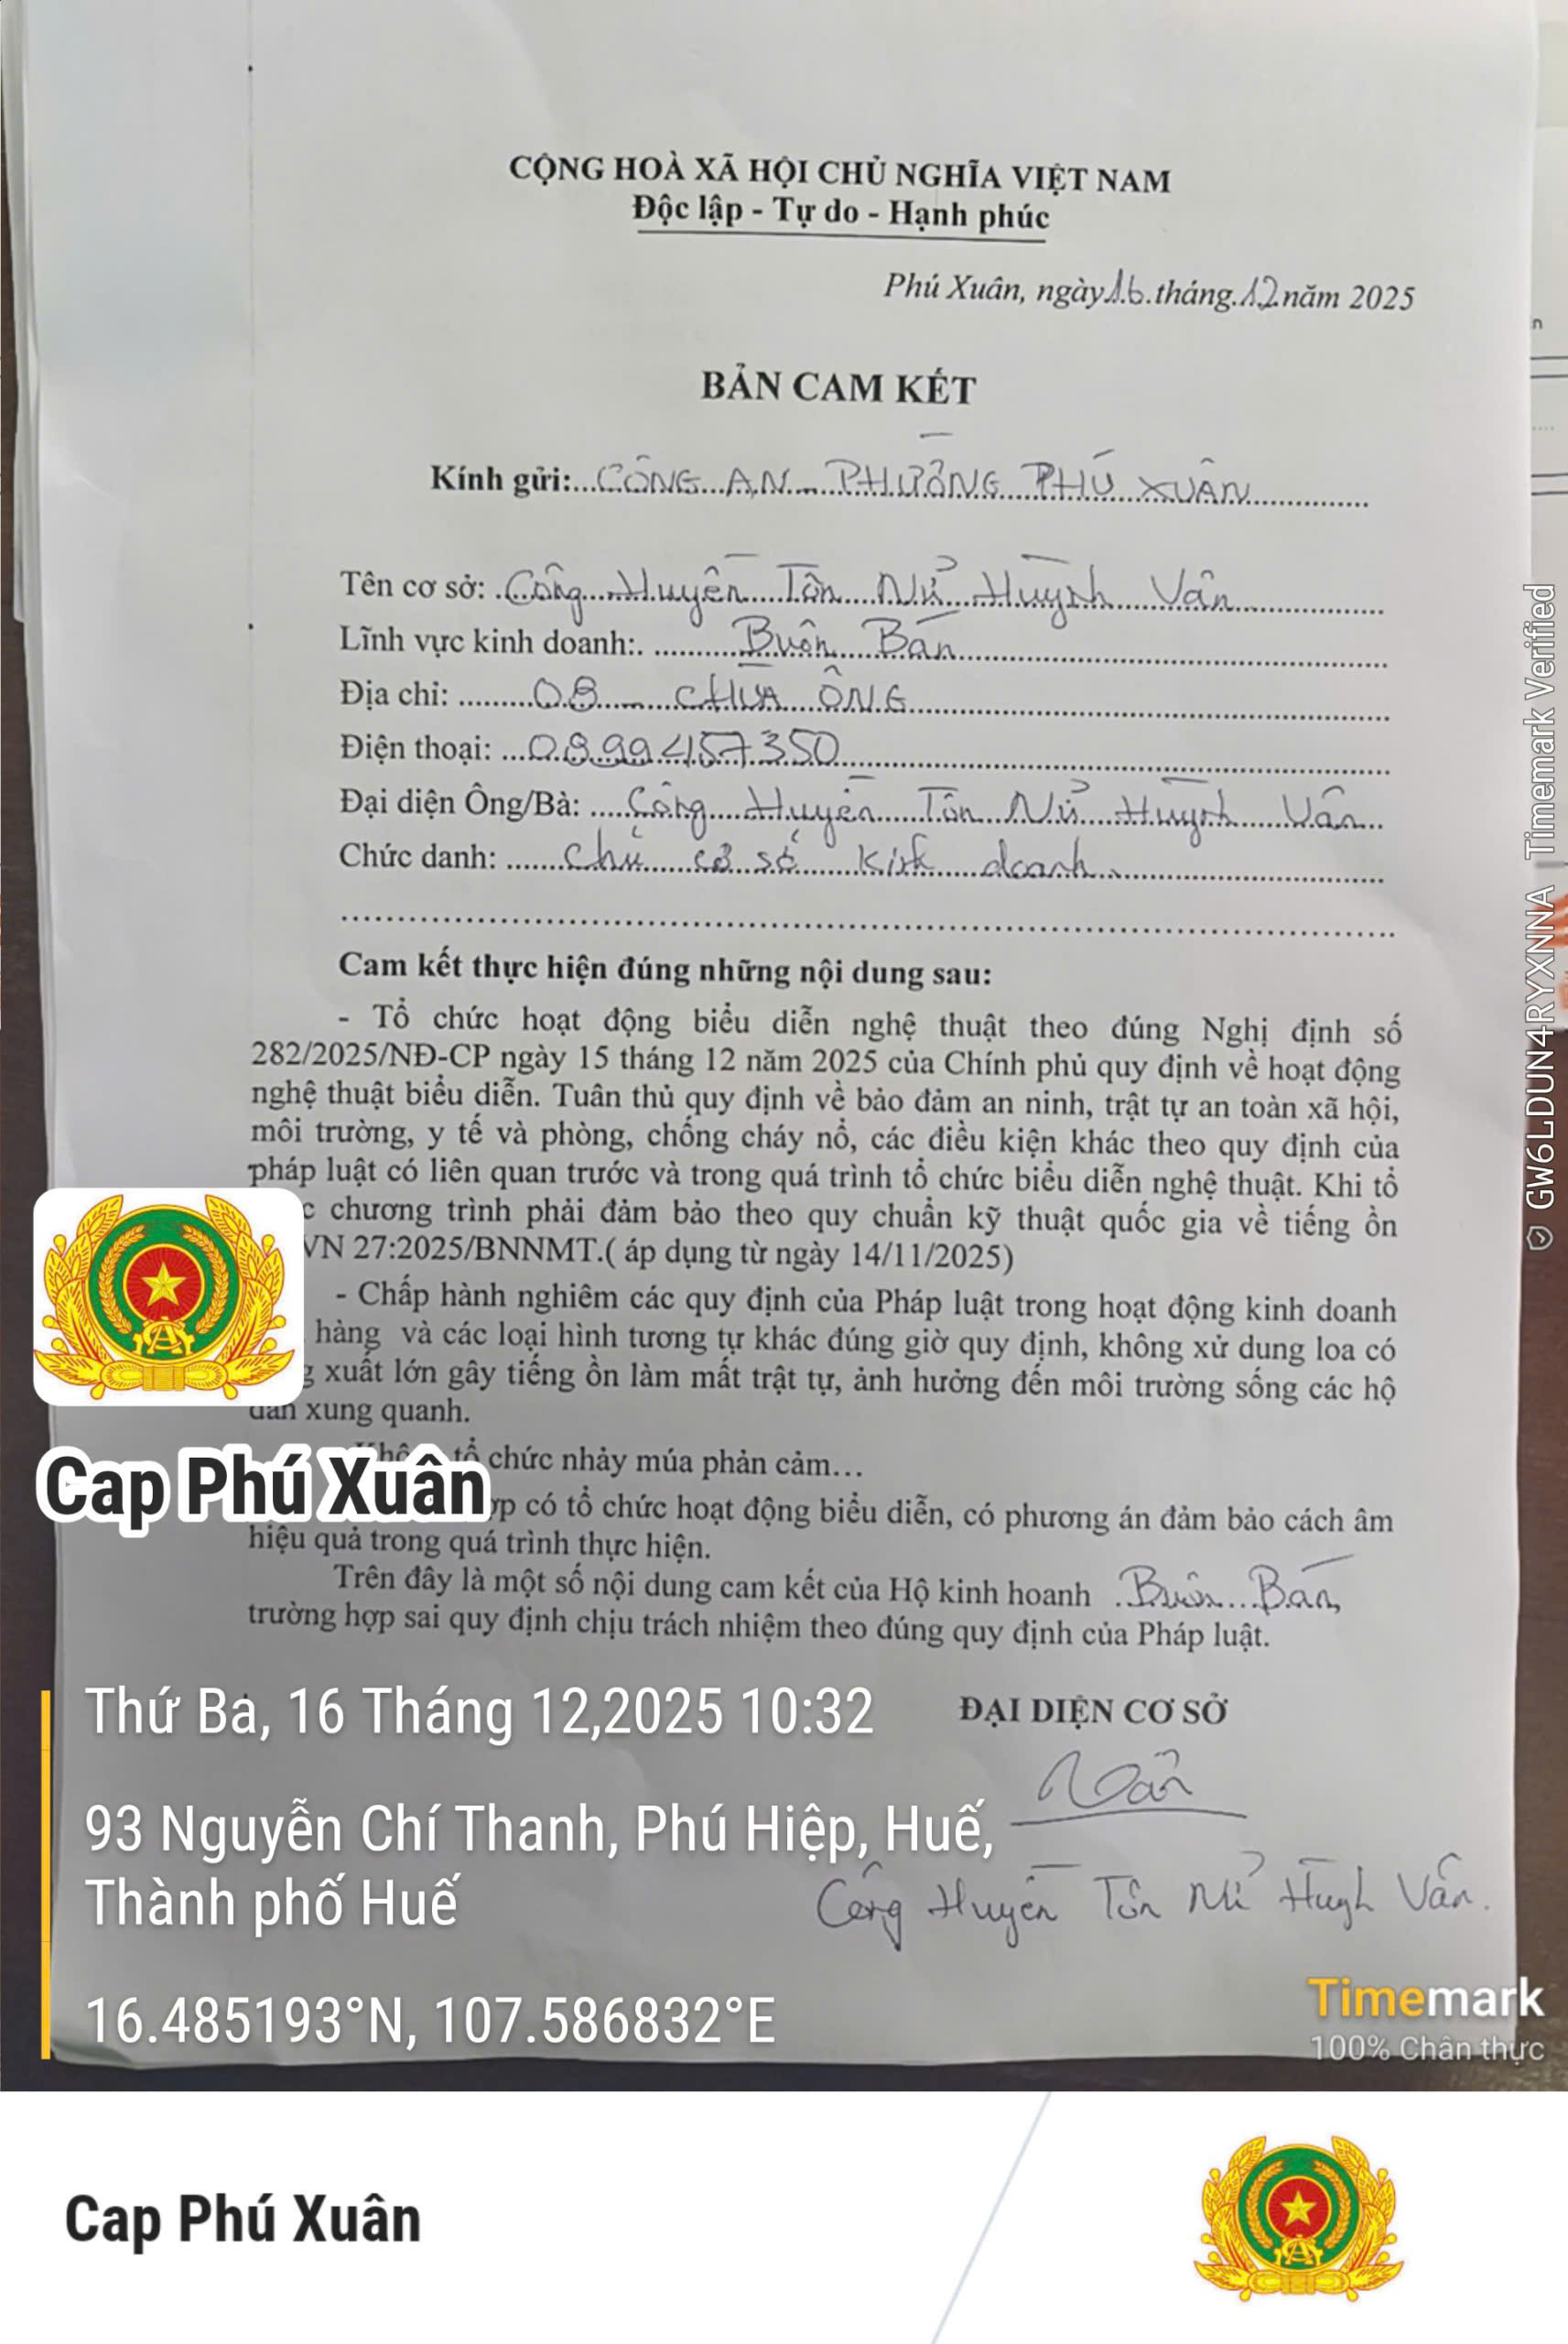 CỘNG HOÀ XÃ HỘI CHỦ NGHĨA VIỆT NAM
Độc lập - Tự do - Hạnh phúc
Phú Xuân, ngày 16 tháng 12 năm 2025
BẢN CAM KẾT
Kính gửi: CÔNG AN PHƯỜNG PHÚ XUÂN
Tên cơ sở: Công Huyền Tôn Nữ Huỳnh Vân
Lĩnh vực kinh doanh: Buôn Bán
Địa chỉ: 08 CHÙA ÔNG
Điện thoại: 0899457350
Đại diện Ông/Bà: Công Huyền Tôn Nữ Huỳnh Vân
Chức danh: chủ cơ sở kinh doanh
Cam kết thực hiện đúng những nội dung sau:
- Tổ chức hoạt động biểu diễn nghệ thuật theo đúng Nghị định số
282/2025/NĐ-CP ngày 15 tháng 12 năm 2025 của Chính phủ quy định về hoạt động
nghệ thuật biểu diễn. Tuân thủ quy định về bảo đảm an ninh, trật tự an toàn xã hội,
môi trường, y tế và phòng, chống cháy nổ, các điều kiện khác theo quy định của
pháp luật có liên quan trước và trong quá trình tổ chức biểu diễn nghệ thuật. Khi tổ
c chương trình phải đảm bảo theo quy chuẩn kỹ thuật quốc gia về tiếng ồn
VN 27:2025/BNNMT.( áp dụng từ ngày 14/11/2025)
- Chấp hành nghiêm các quy định của Pháp luật trong hoạt động kinh doanh
hàng và các loại hình tương tự khác đúng giờ quy định, không xử dung loa có
g xuất lớn gây tiếng ồn làm mất trật tự, ảnh hưởng đến môi trường sống các hộ
dân xung quanh.
tổ chức nhảy múa phản cảm...
ợp có tổ chức hoạt động biểu diễn, có phương án đảm bảo cách âm
hiệu quả trong quá trình thực hiện.
Trên đây là một số nội dung cam kết của Hộ kinh hoanh Buôn Bán,
trường hợp sai quy định chịu trách nhiệm theo đúng quy định của Pháp luật.
ĐẠI DIỆN CƠ SỞ
Vân
Công Huyền Tôn Nữ Huỳnh Vân.
Cap Phú Xuân
Thứ Ba, 16 Tháng 12,2025 10:32
93 Nguyễn Chí Thanh, Phú Hiệp, Huế,
Thành phố Huế
16.485193°N, 107.586832°E
Timemark
100% Chân thực
GW6LDUN4RYXNNA Timemark Verified
Cap Phú Xuân